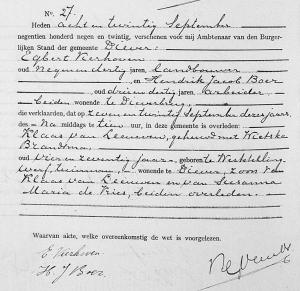 No. 27.
Heden acht en twintig September
negentien honderd negen en twintig, verschenen voor mij Ambtenaar van den Burger-
lijken Stand der gemeente Diever:
Egbert Vierhoven
oud negen en dertig jaren, Landbouwer
en Hendrik Jacob Boer
oud drie en dertig jaren, arbeider
beiden wonende te Diever
die verklaarden, dat op zeven en twintig September dezes jaars
des Na middags te tien uur, in deze gemeente is overleden:
Klaas van Leeuwen, gehuwd met Wietske
Brandsma
oud vier en zeventig jaar, geboren te
wonende te Diever, zoon van
Klaas van Leeuwen en van Susanna
Maria de Vries, beiden overleden.
Waarvan akte, welke overeenkomstig de wet is voorgelezen.
E Vierhoven
H. J Boer.